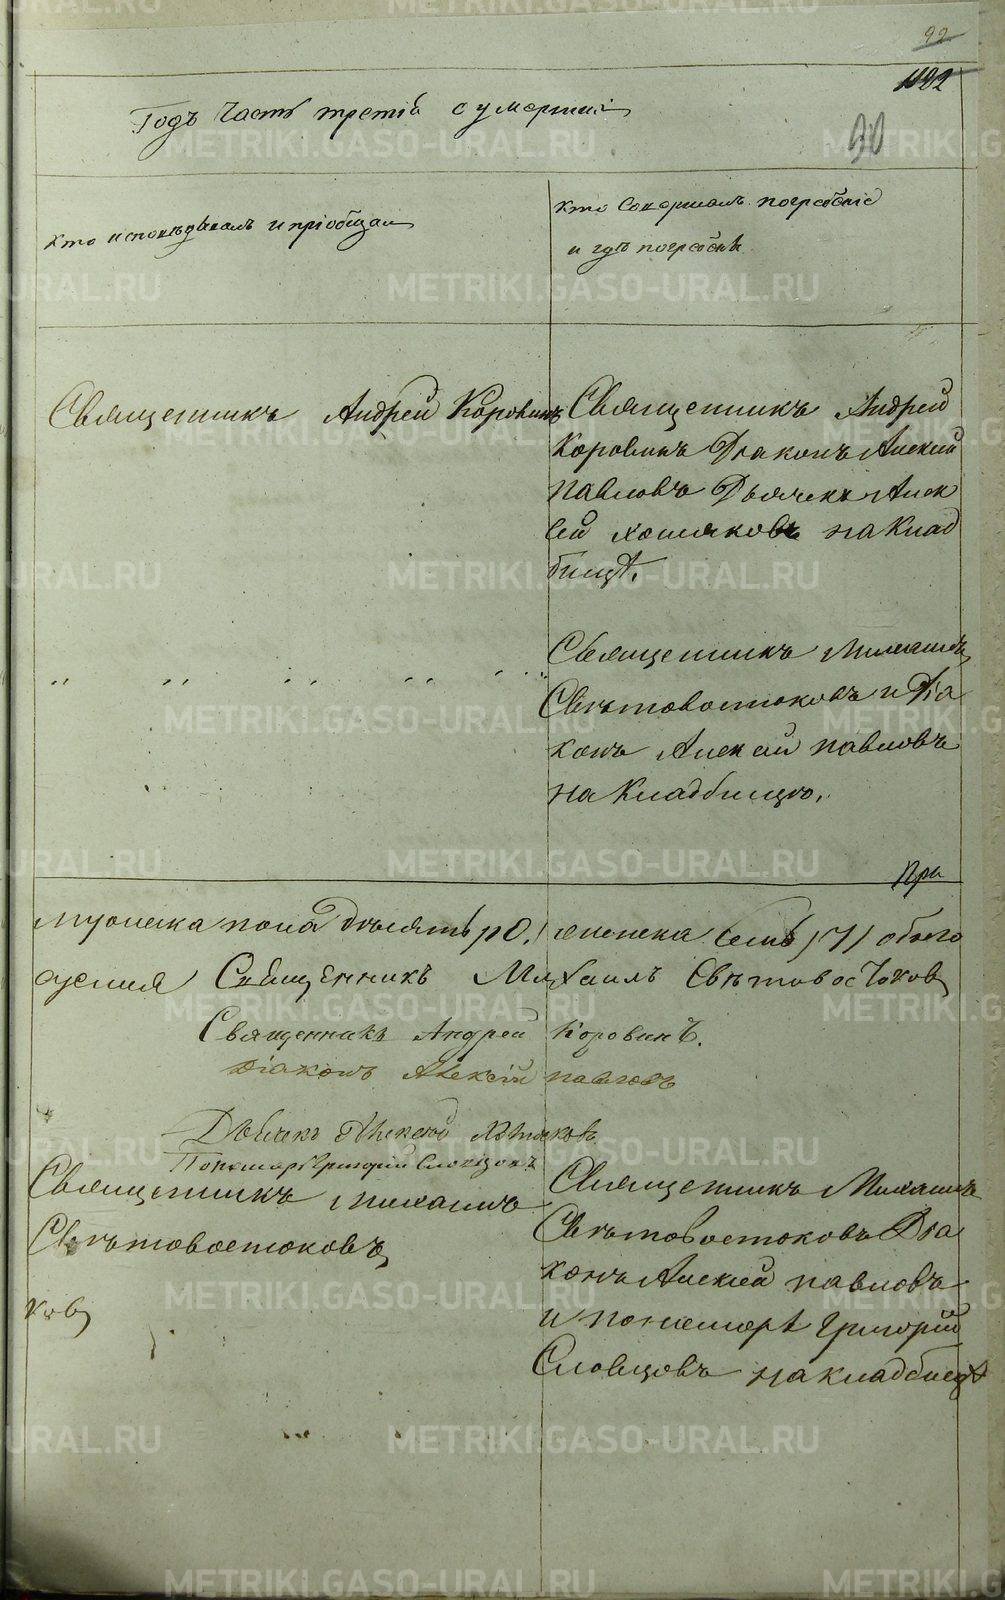 92
102
30
Годъ Часть третiй о умершихъ
Кто исповѣдывалъ и прiобщалъ
Кто Совершалъ погребенiе
и гдѣ погребенъ
Священникъ Андрей Коровинъ
Священникъ Андрей
Коровинъ Дiаконъ Алексiй
Павловъ Дьячекъ Алек
сей Хомяковъ на Клад
бищѣ.
Священникъ Михаилъ
Свѣтовостоковъ и Дiа
конъ Алексей Павловъ
на Кладбищѣ.
При
мужеска пола девять /9/. женска семь /7/ обоего
Священникъ Михаилъ Свѣтовостоковъ
Священникъ Андрей Коровинъ.
Дiаконъ Алексiй Павловъ
Дьячекъ Алексей Хомяковъ
Пономарь Григорiй Словцовъ
Священникъ Михаилъ
Свѣтовостоковъ
ковъ
Священникъ Михаилъ
Свѣтовостоковъ Дiа
конъ Алексей Павловъ
и пономарь Григорiй
Словцовъ на кладбищѣ
METRIKI.GASO-URAL.RU